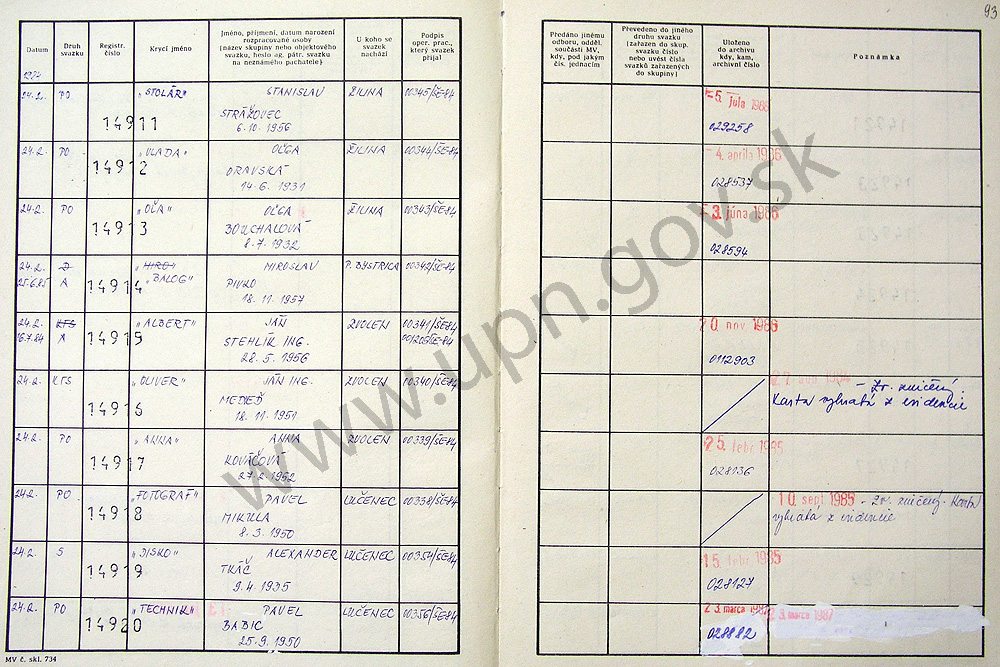 93
Datum
Druh svazku
Registr. číslo
Krycí jméno
Jméno, příjmení, datum narození rozpracované osoby (název skupiny nebo objektového svazku, heslo ag. pátr. svazku na neznámého pachatele)
U koho se svazek nachází
Podpis oper. prac., který svazek přijal
Předáno jinému odboru, odděl. součásti MV, kdy, pod jakým čís. jednacím
Převedeno do jiného druhu svazku (zařazen do skup. svazku číslo nebo uvést čísla svazků zařazených do skupiny)
Uloženo do archivu kdy, kam, archivní číslo
Poznámka
1984
24.2. PO 14911 "STOLÁR" STANISLAV ŽILINA 00345/ŠE-84 5. júla 1988
STRÁŽOVEC
6.10.1956 029258
24.2. PO 14912 "VLADA" OĽGA ŽILINA 00344/ŠE-84 4. apríla 1986
ORAVSKÁ
14.6.1931 028537
24.2. PO 14913 "OĽA" OĽGA ŽILINA 00343/ŠE-84 3. júna 1986
BOUCHALOVÁ
8.7.1932 028594
24.2. D 14914 "MIRO" MIROSLAV P. BYSTRICA 00342/ŠE-84
25.6.85 A "BALOG" PIVKO
18.11.1957
24.2. KTS 14915 "ALBERT" JÁN ZVOLEN 00341/ŠE-84 20 nov 1986
16.7.84 A STEHLÍK ING.
28.5.1956 0112903
24.2. KTS 14916 "OLIVER" JÁN ING. ZVOLEN 00340/ŠE-84 - Zv. zničený.
MEDEĎ Karta vybratá z evidencie
18.11.1951
24.2. PO 14917 "ANNA" ANNA ZVOLEN 00339/ŠE-84 25. febr 1985
KOVÁČOVÁ
27.2.1952 028136
24.2. PO 14918 "FOTOGRAF" PAVEL LUČENEC 00338/ŠE-84 10. sept 1985 - Zv. zničený. Karta
MIKULA vybratá z evidencie
8.3.1950
24.2. S 14919 "DISKO" ALEXANDER LUČENEC 00354/ŠE-84 15. febr 1985
TKÁČ
9.4.1935 028127
24.2. PO 14920 "TECHNIK" PAVEL LUČENEC 00356/ŠE-84 23. marca 1987 23. marca 1987
BABIC
25.9.1950 028882
MV č. skl. 734
www.upn.gov.sk